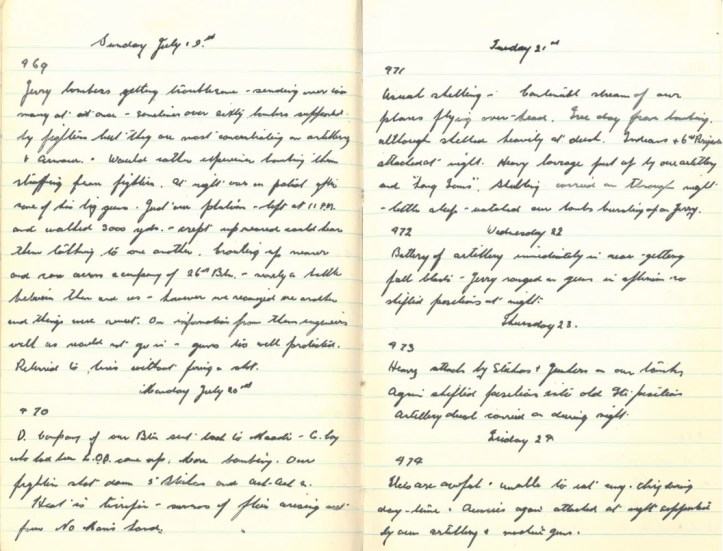 Sunday July 19th
969
Jerry bombers getting troublesome - sending over too
many at at once - sometimes over sixty bombers supported
by fighters but they are most concentrating on artillery
& Armour. Would rather experience bombing than
straffing from fighters. At night was on patrol after
some of his big guns. Just our platoon - left at 11 P.M.
and walked 3000 yds. - crept up nearer could hear
them talking to one another. Crawling up nearer
and ran across a company of 26th Btn. - nearly a battle
between them and us - however we recognized one another
and things were sweet. On information from them engineers
well as would not go in - guns too well protected.
Returned to lines without firing a shot.
Monday July 20th
970
D. Company of our Btn sent back to Maadi - C. Coy
who had been L.O.B. came up. More bombing. Our
fighters shot down 5 Stukas and Ack-Ack 2.
Heat is terrific - swarms of flies arising out
from No Mans Land.
Tuesday 21st
971
Usual shelling - Continual stream of our
planes flying over-head. Free day from bombing,
although shelled heavily at dusk. Indians & 6th Brigade
attacked at night. Heavy barrage put up by our artillery
and "Long Toms". Shelling carried on through night
- little sleep - watched our bombs bursting up on Jerry.
972 Wednesday 22
Battery of artillery immediately in rear - getting
full blast - Jerry ranged on guns in afternoon so
shifted positions at night.
Thursday 23.
973
Heavy attacks by Stukas & Junkers on our tanks
Again shifted positions into old Iti position
Artillery duel carried on during night.
Friday 24
974
Flies are awful - unable to eat any-thing during
day-time. Aussies again attacked at night supported
by our artillery & machine guns.